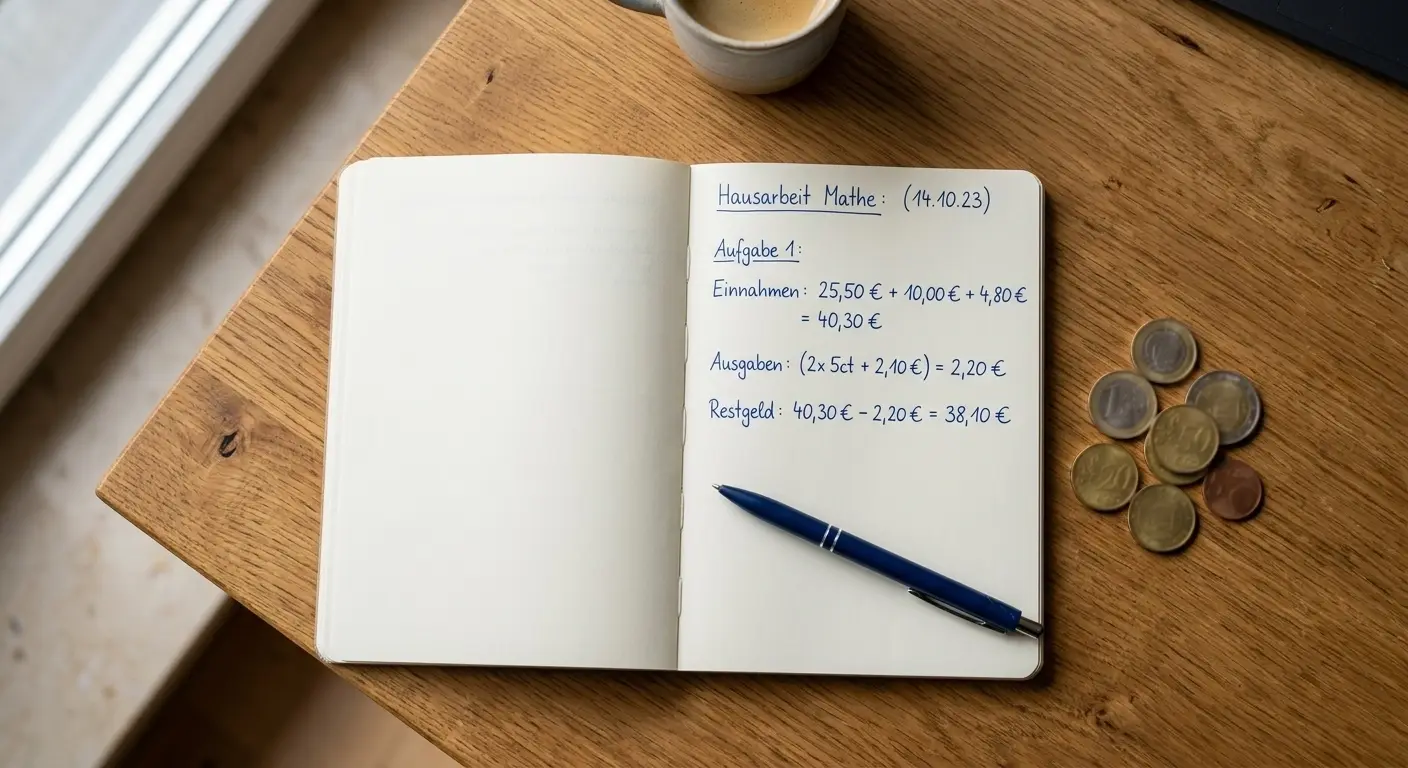 Hausarbeit Mathe: (14.10.23)
Aufgabe 1:
Einnahmen: 25,50 € + 10,00 € + 4,80 €
= 40,30 €
Ausgaben: (2x 5ct + 2,10 €) = 2,20 €
Restgeld: 40,30 € – 2,20 € = 38,10 €